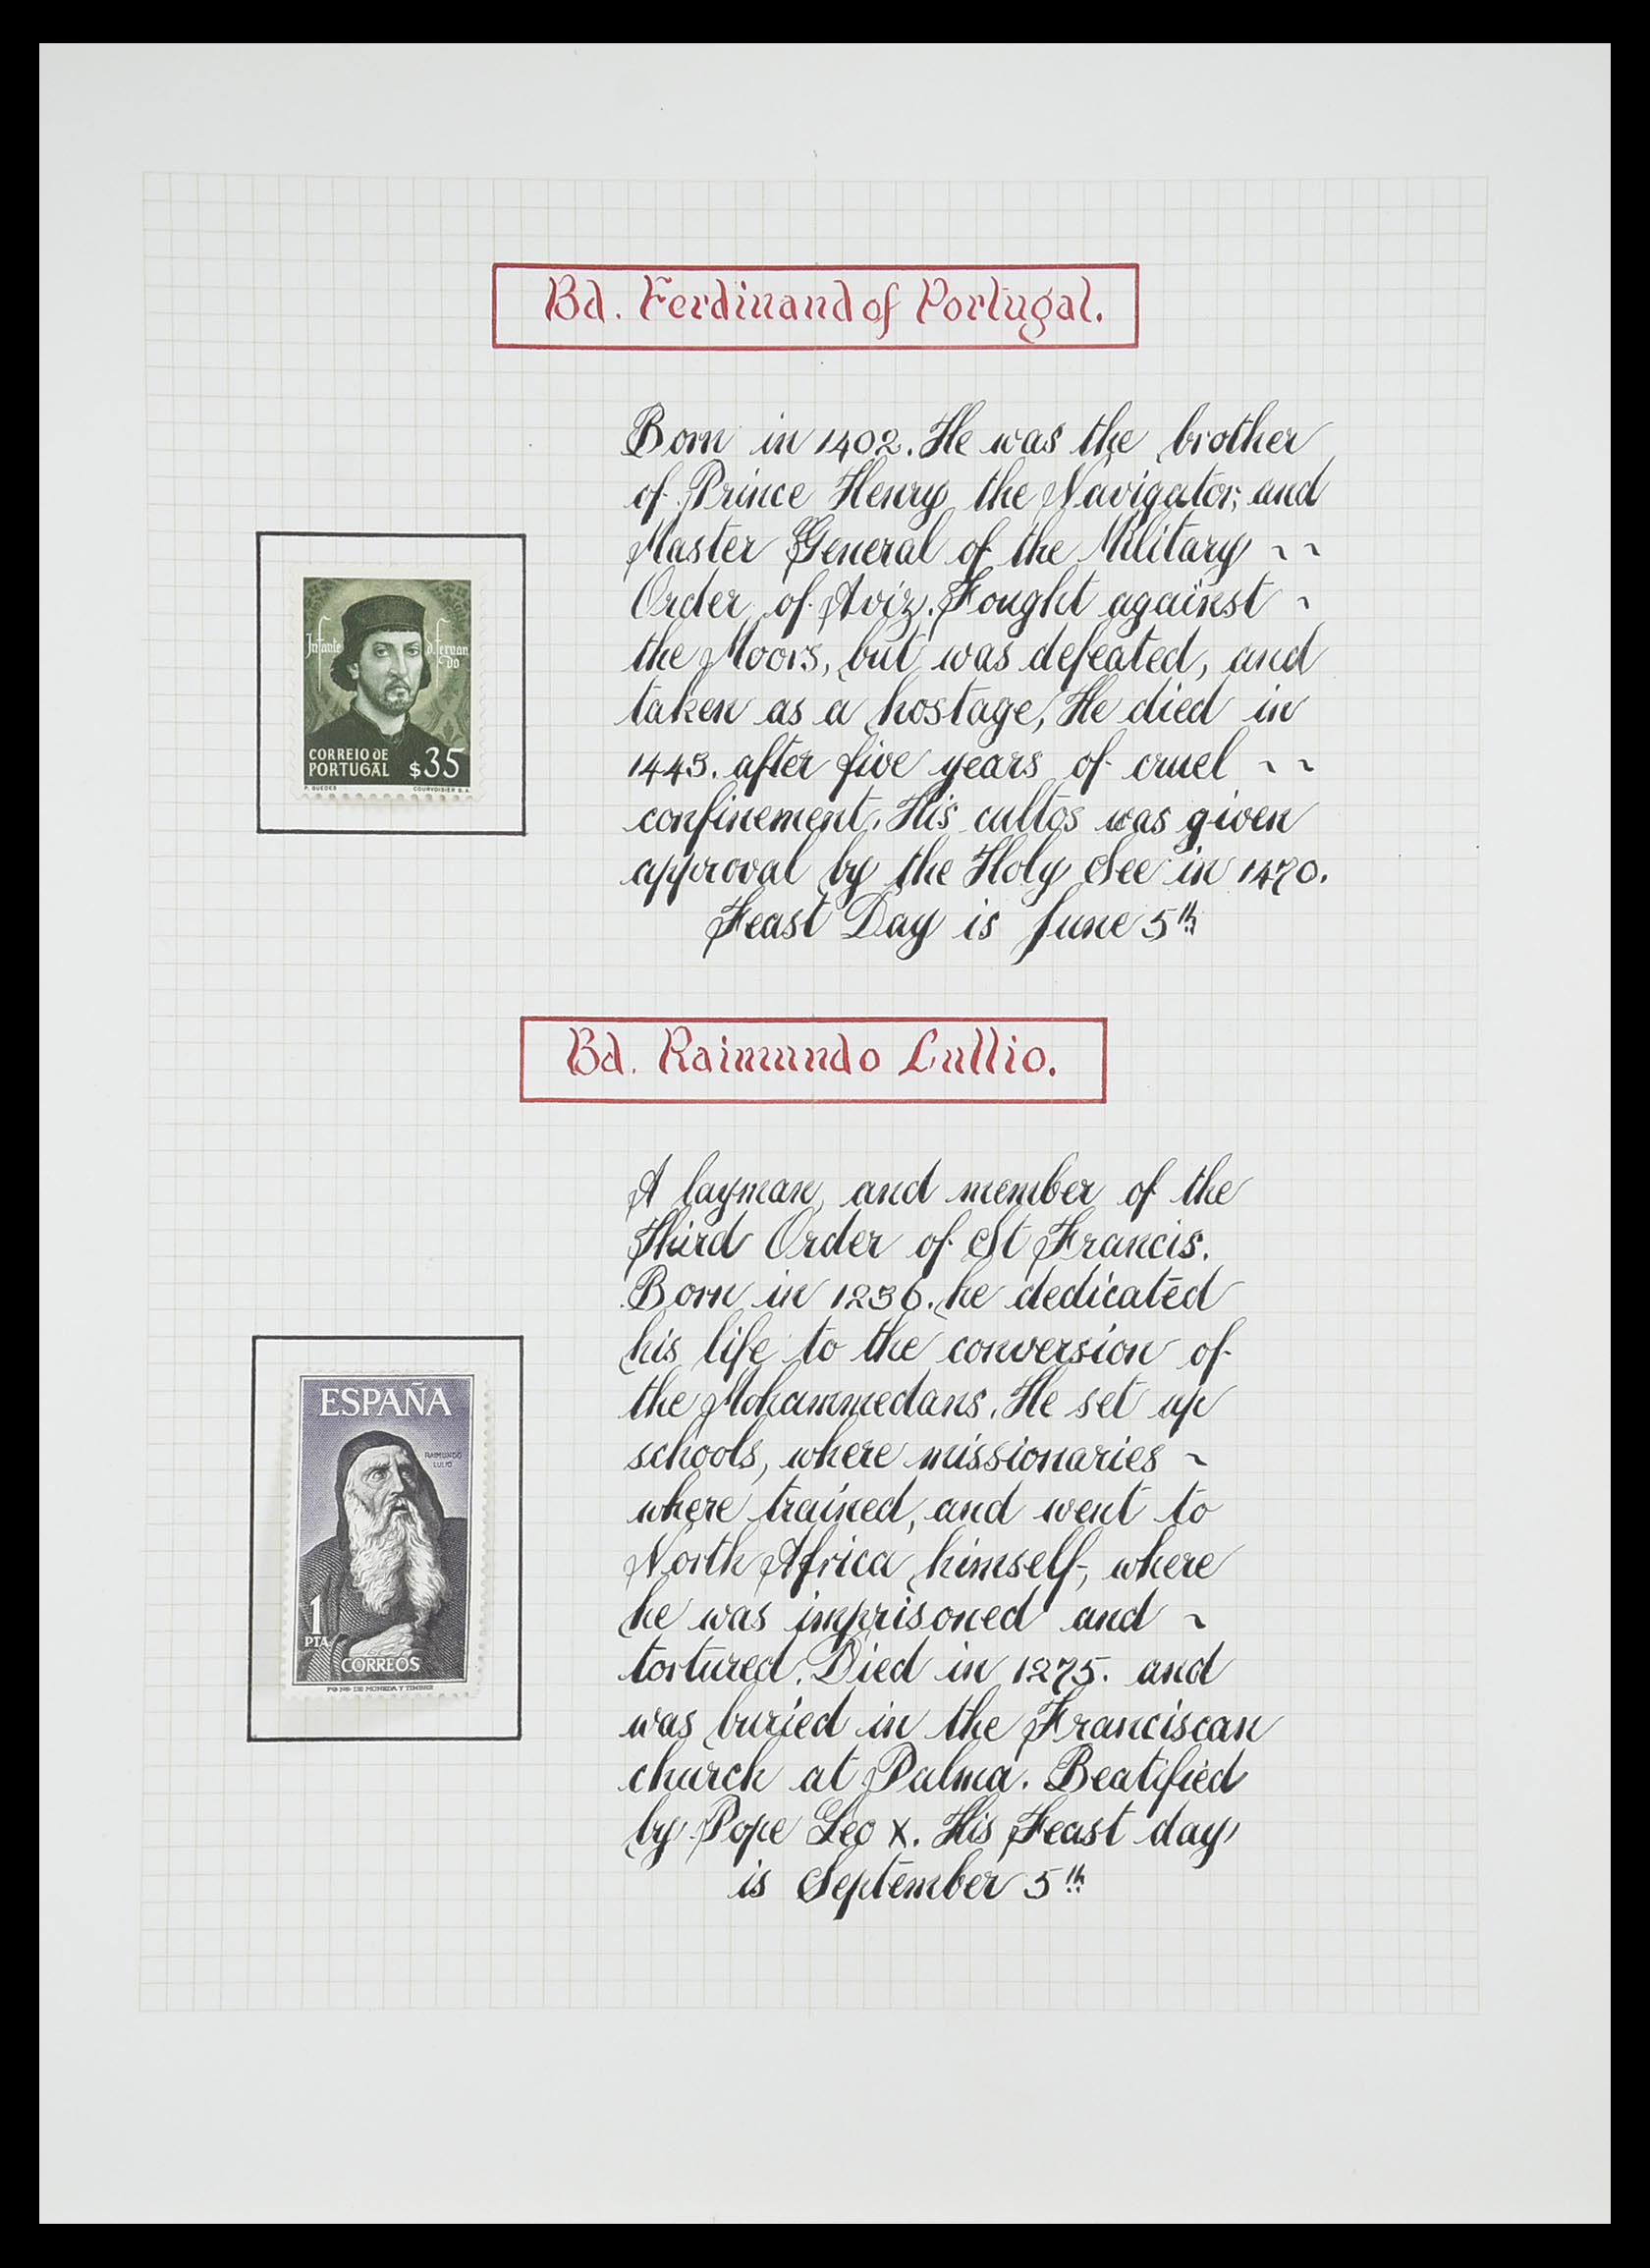 Bd. Ferdinand of Portugal.
Born in 1402. He was the brother
of Prince Henry the Navigator, and
Master General of the Military ~ ~
Order of Aviz. Fought against ~
the Moors, but was defeated, and
taken as a hostage, He died in
1443. after five years of cruel ~ ~
confinement. His cultos was given
approval by the Holy See in 1470.
Feast Day is June 5th
Infante
d. fernan
do
CORREIO DE
PORTUGAL $35
P. GUEDES COURVOISIER S.A.
Bd. Raimundo Lullio.
A layman, and member of the
Third Order of St Francis.
Born in 1236. he dedicated
his life to the conversion of
the Mohammedans. He set up
schools, where missionaries ~
where trained, and went to
North Africa himself, where
he was imprisoned and ~
tortured. Died in 1275. and
was buried in the Franciscan
church at Palma. Beatified
by Pope Leo X. His Feast day
is September 5th
ESPAÑA
RAIMUNDO
LULIO
1
PTA
CORREOS
DE MONEDA Y TIMBRE